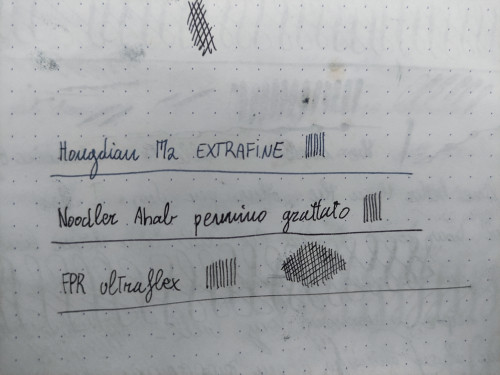 Hougdian M2 EXTRAFINE
Noodler Ahab pennino grattato
FPR ultraflex